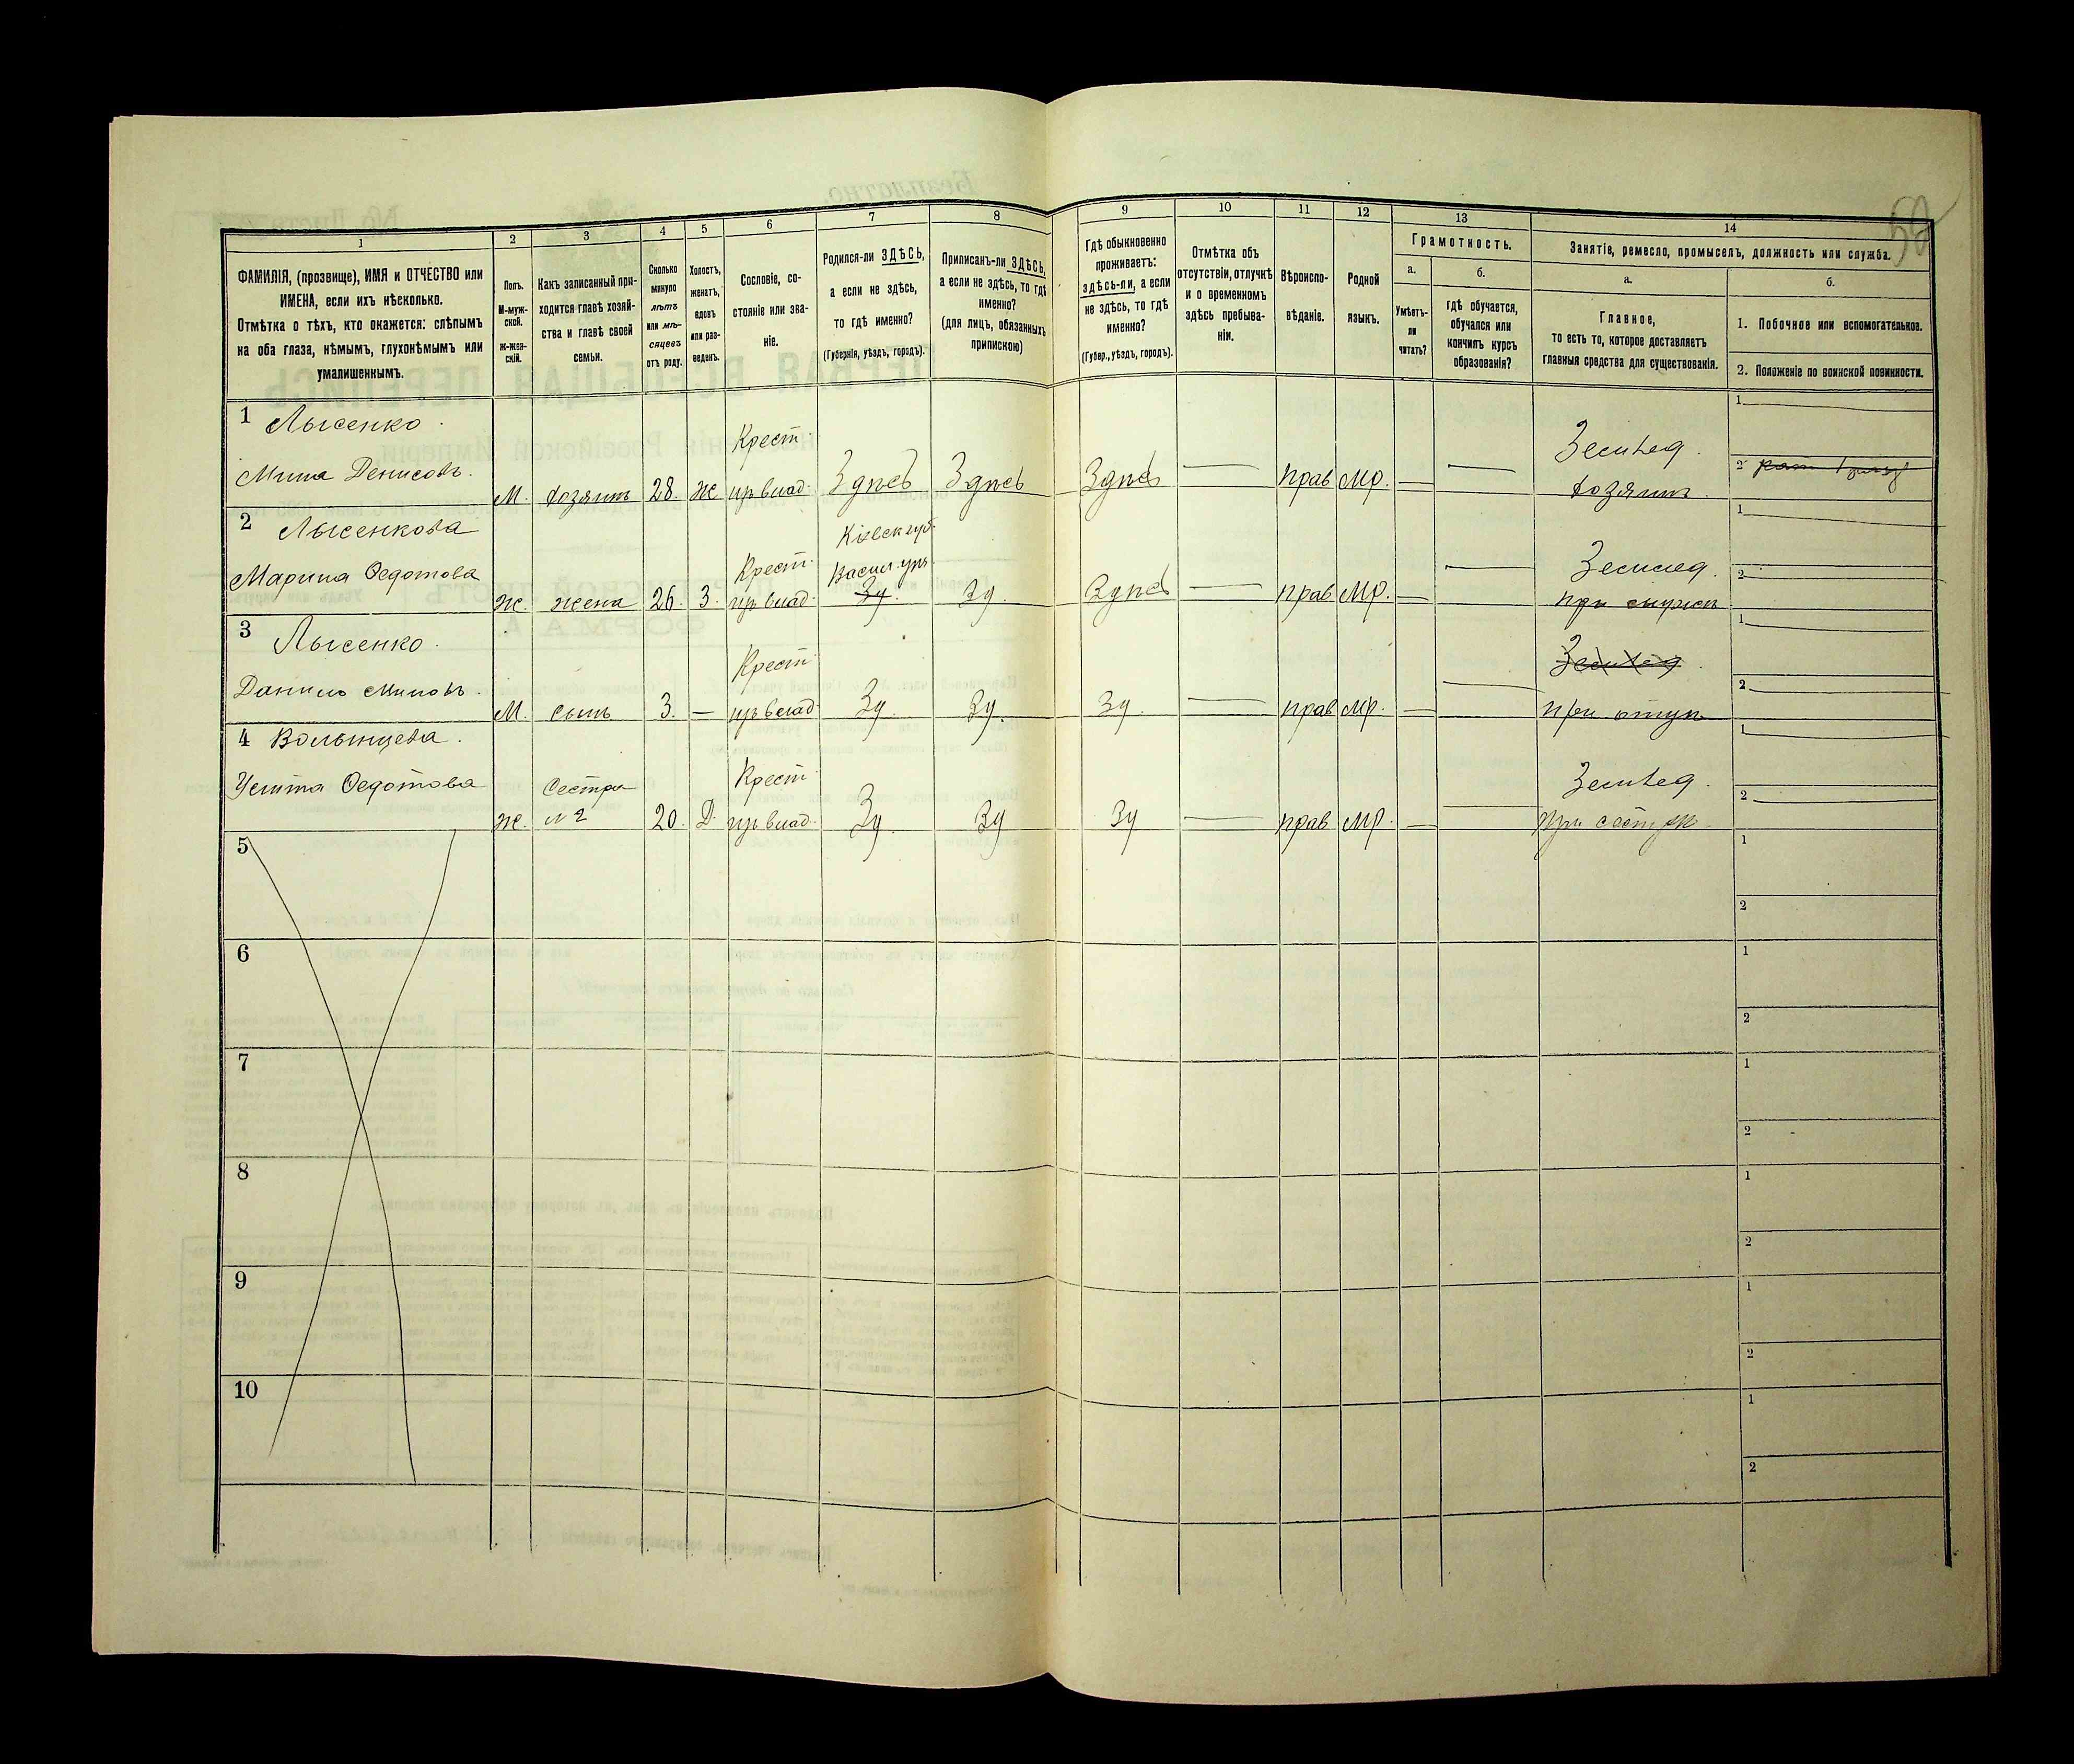 58
1
2
3
4
5
6
7
8
9
10
11
12
13
14
ФАМИЛІЯ, (прозвище), ИМЯ и ОТЧЕСТВО или
ИМЕНА, если ихъ нѣсколько.
Отмѣтка о тѣхъ, кто окажется: слѣпымъ
на оба глаза, нѣмымъ, глухонѣмымъ или
умалишеннымъ.
Полъ.
М-муж-
ской.
Ж-жен-
скій.
Какъ записанный при-
ходится главѣ хозяй-
ства и главѣ своей
семьи.
Сколько
минуло
лѣтъ
или мѣ-
сяцевъ
отъ роду.
Холостъ,
женатъ,
вдовъ
или раз-
веденъ.
Сословіе, со-
стояніе или зва-
ніе.
Родился-ли ЗДѢСЬ,
а если не здѣсь,
то гдѣ именно?
(Губернія, уѣздъ, городъ).
Приписанъ-ли ЗДѢСЬ,
а если не здѣсь, то гдѣ
именно?
(для лицъ, обязанныхъ
припискою)
Гдѣ обыкновенно
проживаетъ:
здѣсь-ли, а если
не здѣсь, то гдѣ
именно?
(Губер., уѣздъ, городъ).
Отмѣтка объ
отсутствіи, отлучкѣ
и о временномъ
здѣсь пребыва-
ніи.
Вѣроиспо-
вѣданіе.
Родной
языкъ.
Грамотность.
а.
Умѣетъ-
ли
читать?
б.
Гдѣ обучается,
обучался или
кончилъ курсъ
образованія?
Занятіе, ремесло, промыселъ, должность или служба.
а.
Главное,
то есть то, которое доставляетъ
главныя средства для существованія.
б.
1. Побочное или вспомогательное.
2. Положеніе по воинской повинности.
1 Лысенко
Мина Денисовъ.
М. хозяинъ 28. Ж Крест. ир влад. Здѣсь Здѣсь Здѣсь — прав мр. — — Земled. хозяинъ
1
2
2 Лысенкова
Марина Ѳедотова
Ж. жена 26. З. Крест. ир влад. Кіевск губ. Васил. уѣз. Зд. Зд. Здѣсь — прав мр. — — Землед.
1
2
3 Лысенко.
Данило Миновъ.
М. сынъ 3. — Крест. ир влад. Зд. Зд. Зд. — прав мр. — — Землед. при отцѣ
1
2
4 Волынцева.
Устина Ѳедотова
Ж. Сестра № 2 20. Д. Крест. ир влад. Зд. Зд Зд — прав мр. — — Землед.
1
2
5
1
2
6
1
2
7
1
2
8
1
2
9
1
2
10
1
2